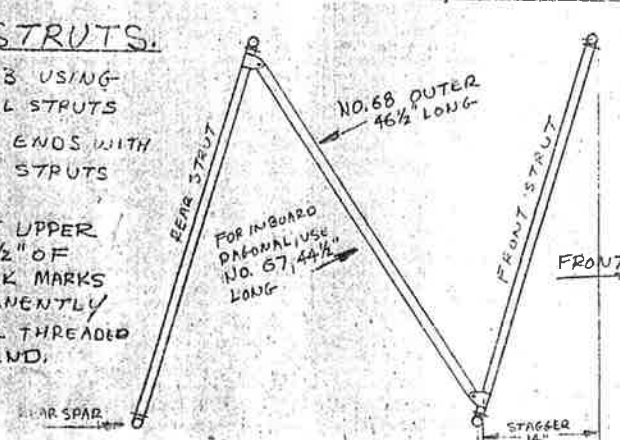 STRUTS.
B USING
L STRUTS
ENDS WITH
STRUTS
UPPER
½" OF
K MARKS
NENTLY
L THREADED
END.
REAR STRUT
NO. 68 OUTER
46½" LONG
FOR INBOARD
DAGONAL, USE
NO. 67, 44½"
LONG
FRONT STRUT
FRONT
AR SPAR
STAGGER
14"